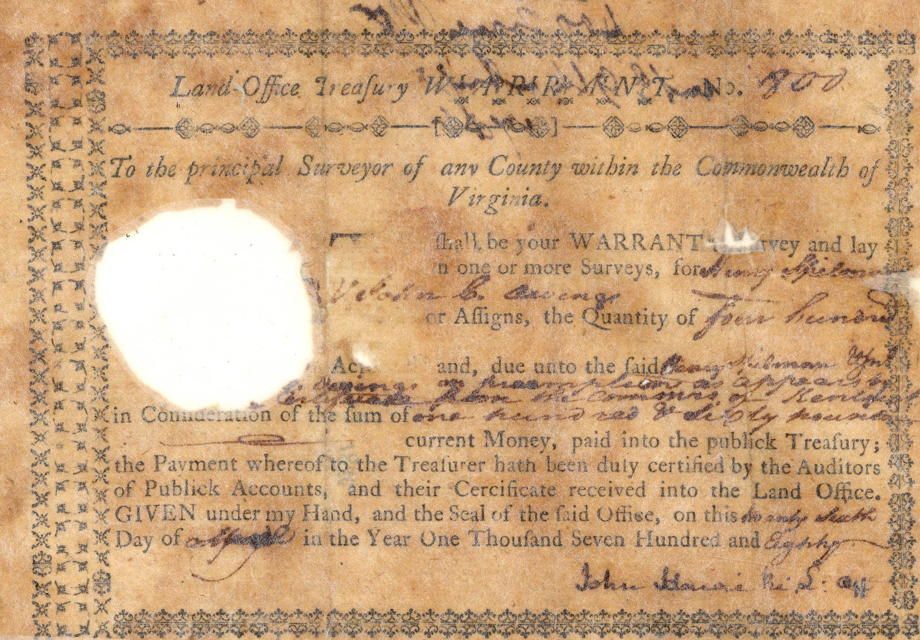 Land-Office Treasury WARRANT, No. 800
To the principal Surveyor of any County within the Commonwealth of
Virginia.
shall be your WARRANT to survey and lay
n one or more Surveys, for Henry
& John C. Owings
or Aſſigns, the Quantity of four hundred
and, due unto the ſaid Henry
C. Owings on preemption as appears by
Certificate from the
in Conſideration of the ſum of one hundred & Sixty pounds
current Money, paid into the publick Treaſury;
the Payment whereof to the Treaſurer hath been duly certified by the Auditors
of Publick Accounts, and their Cercificate received into the Land Office.
GIVEN under my Hand, and the Seal of the ſaid Office, on this twenty
Day of in the Year One Thouſand Seven Hundred and Eighty
John